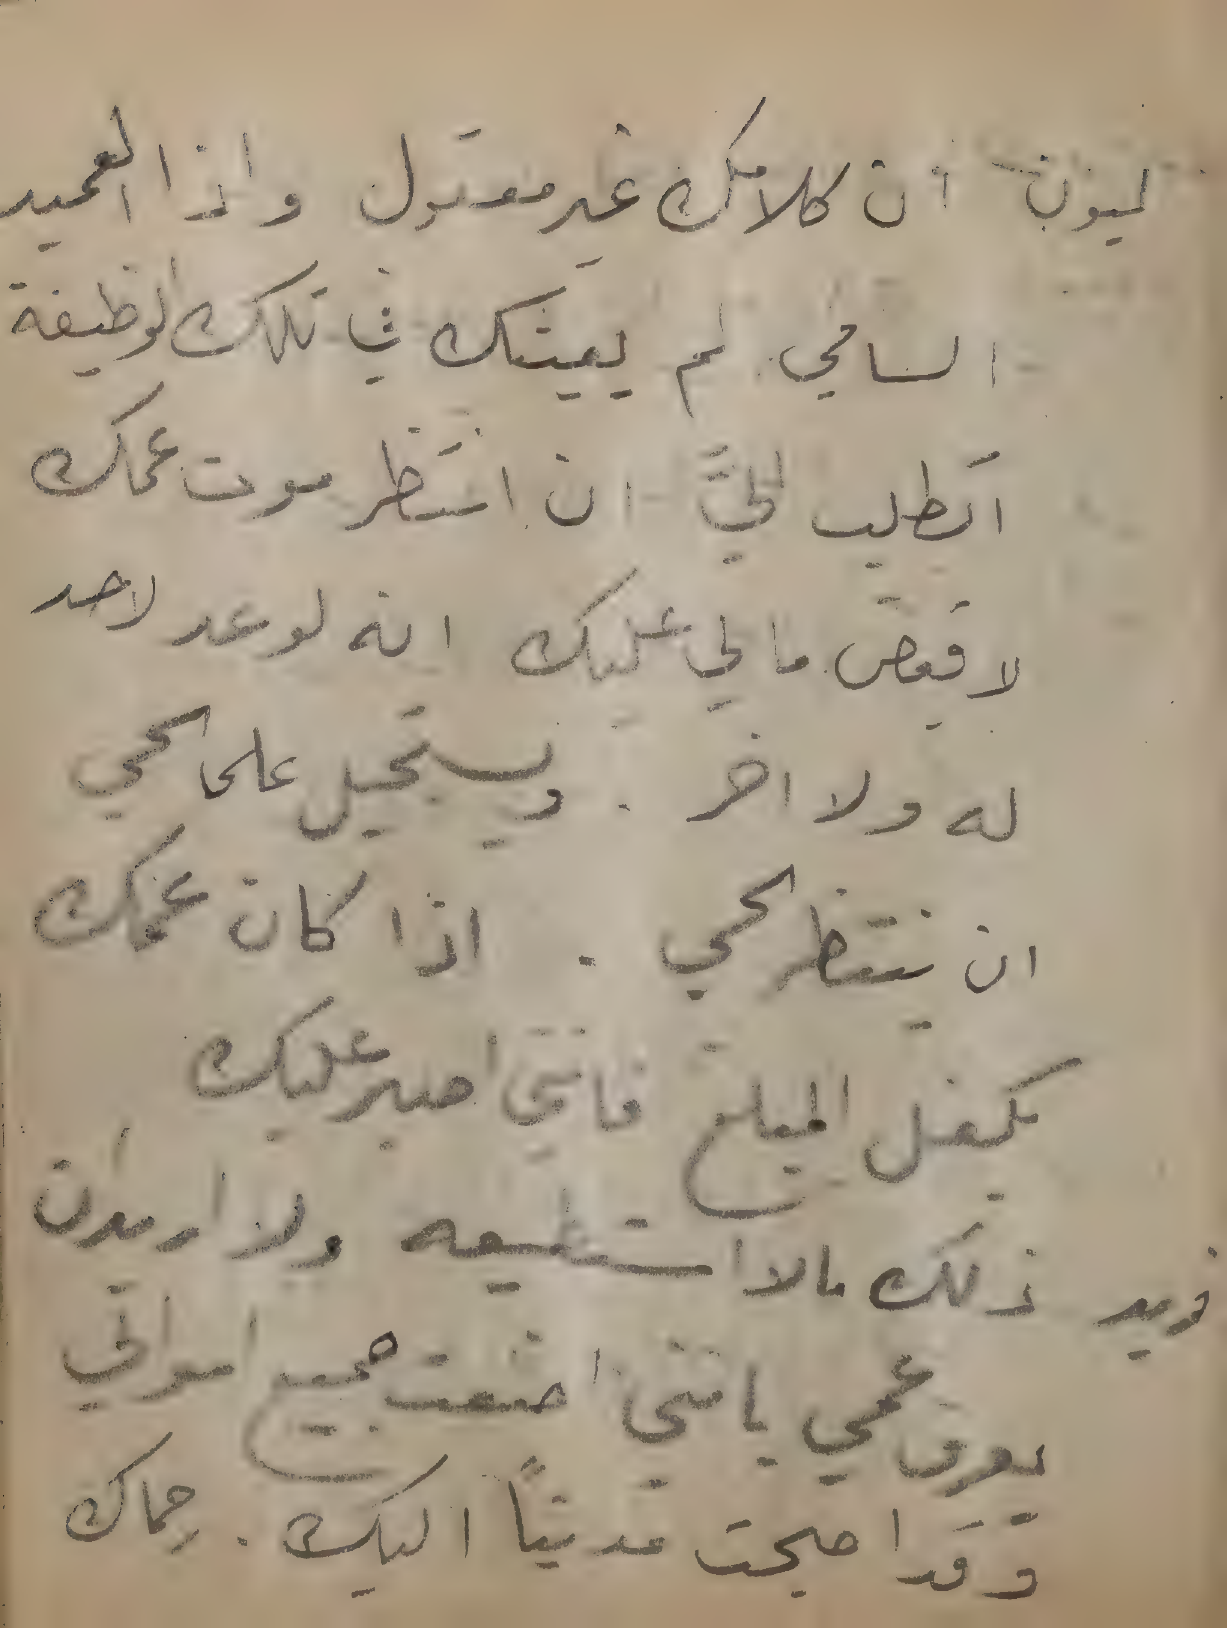 ليون ان كلامك غير معقول واذا العميد
السامي لم يعينك في تلك الوظيفة
اتطلب اليَّ ان انتظر موت عمك
لاقبض مالي عليك انه لوعد لاحد
له ولا اخر . ويستحيل على الحي
ان ينتظر الحي . اذا كان عمك
يكفل المبلغ فانني اصبر عليك
فريد ذلك مالا استطيعه ولا اريد ان
يعرف عمي بانني اضعت جميع اموالي
وقد اصبحت مديناً اليك .